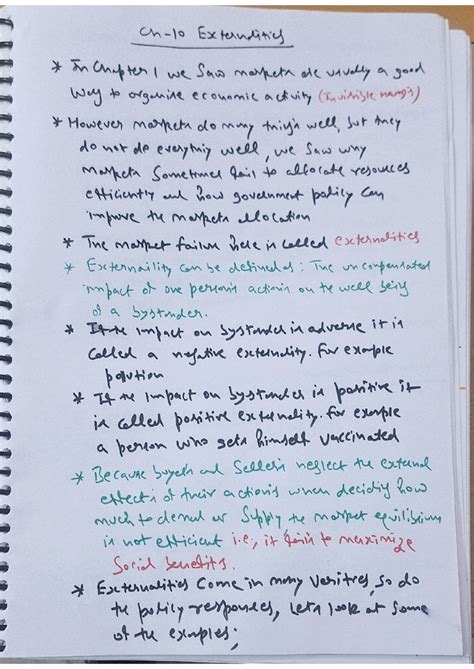 Ch-10 Externalities
* In Chapter 1 we saw markets are usually a good
way to organise economic activity (Invisible hand)
* However markets do many things well, but they
do not do everything well, we saw why
markets sometimes fail to allocate resources
efficiently and how government policy can
improve the markets allocation
* The market failure here is called externalities
* Externaility can be defined as : The uncompensated
impact of one person's actions on the well being
of a bystander.
* If the impact on bystander is adverse it is
called a negative externality. For example
pollution
* If the impact on bystander is positive it
is called positive externality. for example
a person who gets himself vaccinated
* Because buyers and sellers neglect the external
effects of their actions when deciding how
much to demand or supply the market equilibrium
is not efficient i.e., it fails to maximize
Social benefits.
* Externalities come in many varities, so do
the policy responses, Let's look at some
of the examples;